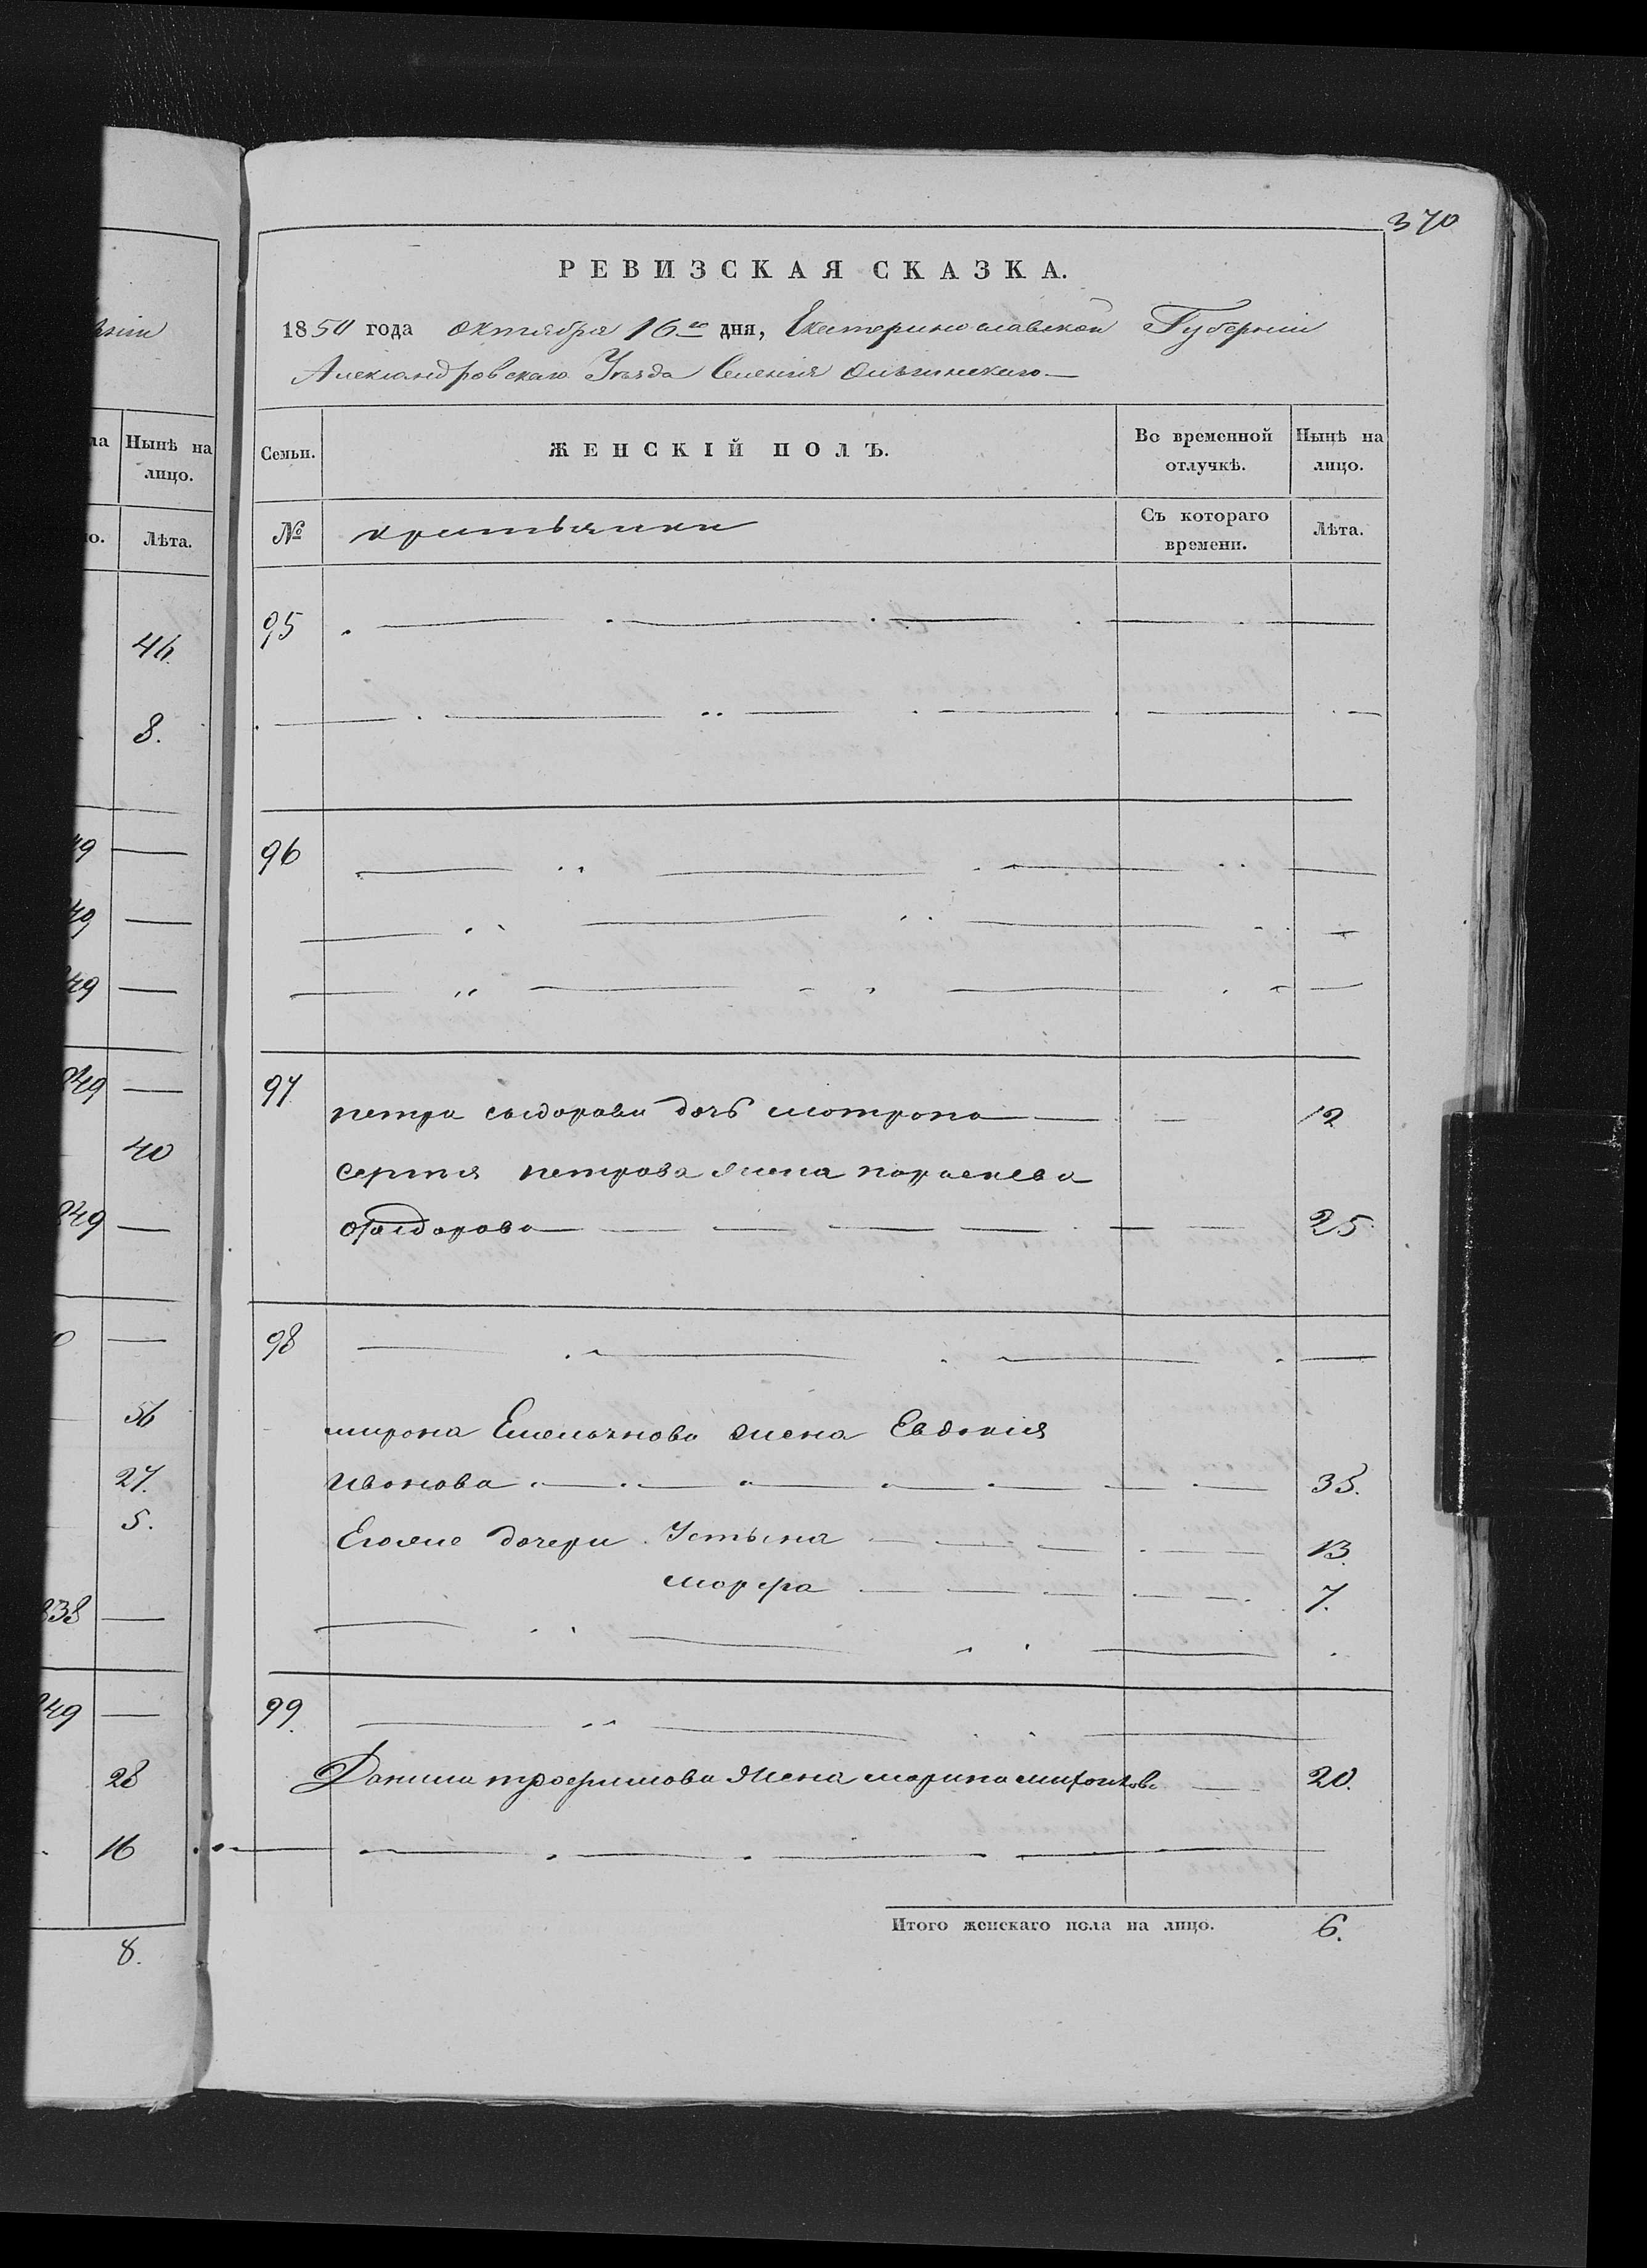 370
РЕВИЗСКАЯ СКАЗКА.
1850 года октября 16го дня, Екатеринославской Губерніи
Александровскаго Уѣзда Селенія
Семьи. ЖЕНСКІЙ ПОЛЪ. Во временной отлучкѣ. Нынѣ на лицо.
№ Съ котораго времени. Лѣта.
95
96
97
петра сидорова дочь мотрона 12
Сергея петрова жена параскева
Фадорова 25
98
мирона Емельянова жена Евдокия
Иванова 35.
Егояже дочери Устина 13.
марфа 7.
99.
Данила трофимова жена марина 20.
Итого женскаго пола на лицо. 6.
Нынѣ на лицо.
Лѣта.
46.
8.
49
49
49
849
40
849
56
27.
5.
838
849
28
16
8.